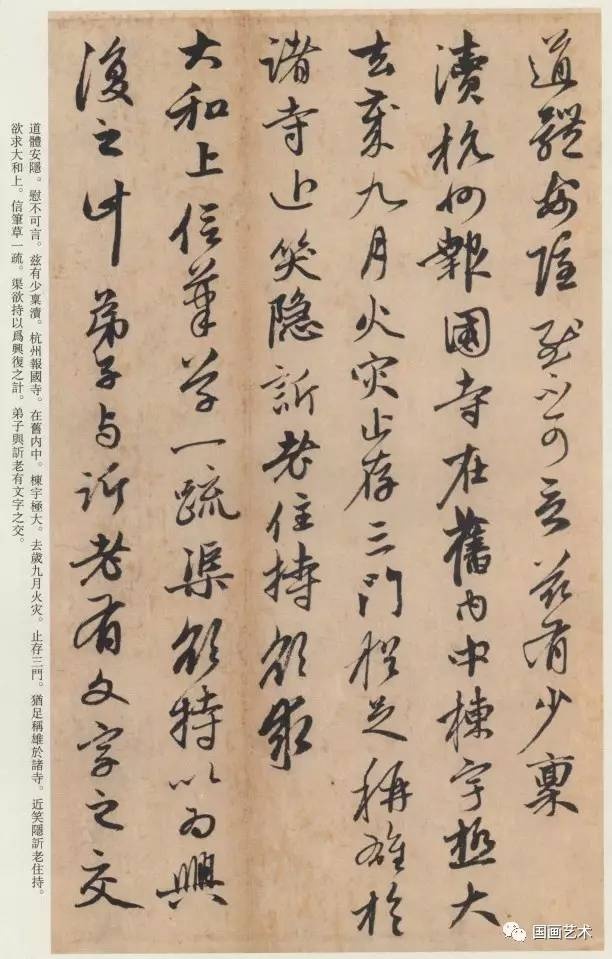 道體安隱慰不可言茲有少稟
瀆杭州報國寺在舊內中棟宇極大
去歲九月火灾止存三門猶足稱雄於
諸寺近笑隱訢老住持欲求
大和上信筆草一疏渠欲持以為興
復之計弟子与訢老有文字之交
道體安隱。慰不可言。茲有少稟瀆。杭州報國寺。在舊内中。棟宇極大。去歲九月火灾。止存三門。猶足稱雄於諸寺。近笑隱訢老住持。
欲求大和上。信筆草一疏。渠欲持以爲興復之計。弟子與訢老有文字之交。
国画艺术